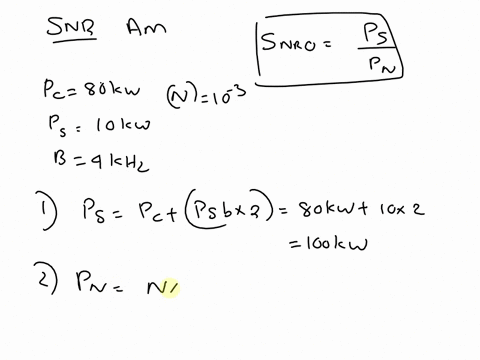 SNR AM
SNRO = PS / PN
Pc = 80kW (N) = 10^-3
Ps = 10kW
B = 4kHz
1) Ps = Pc + (Psb x 2) = 80kW + 10 x 2
= 100kW
2) PN = N